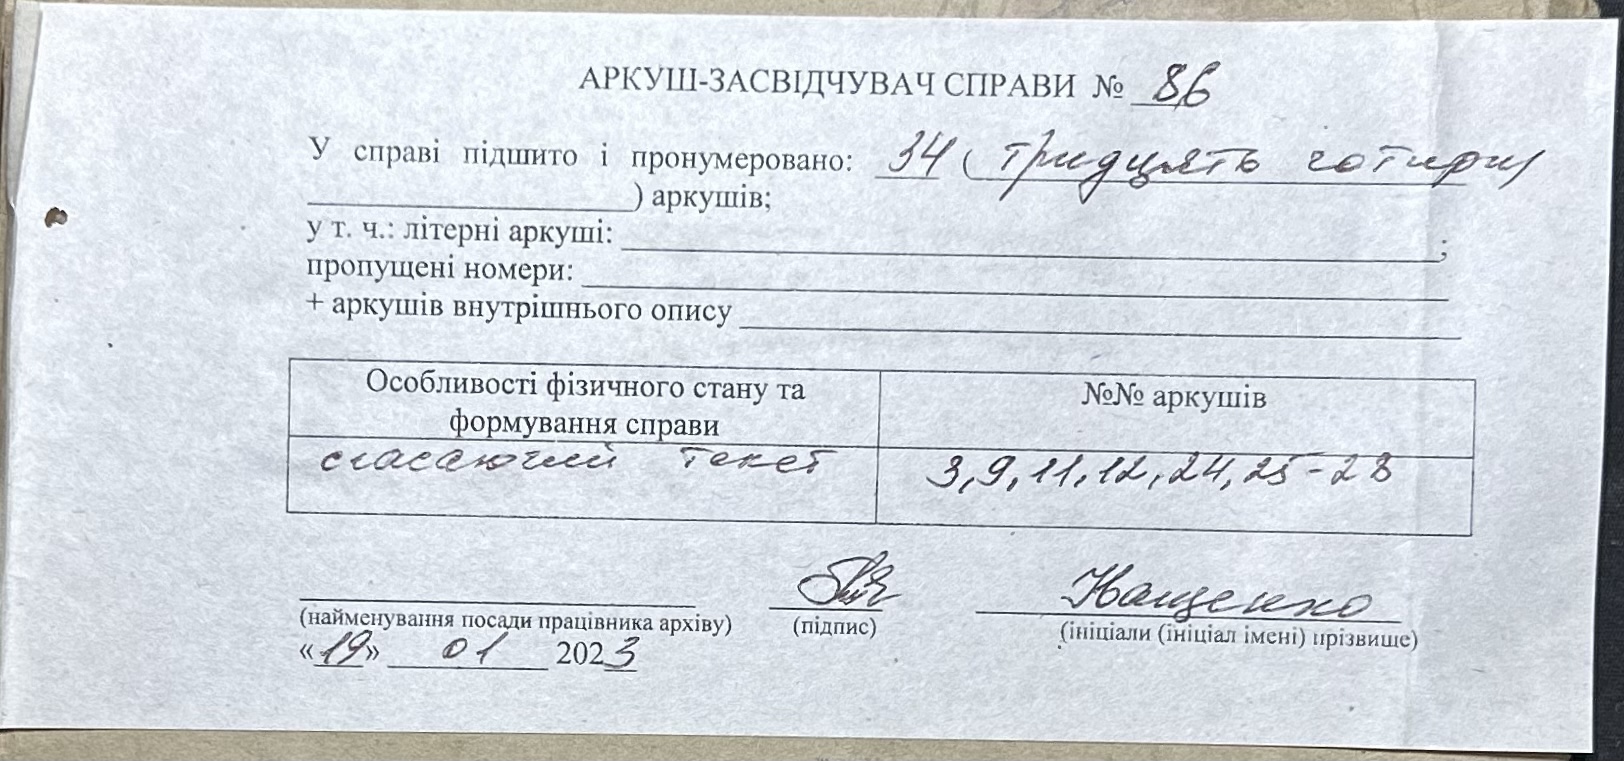 АРКУШ-ЗАСВІДЧУВАЧ СПРАВИ № 86
У справі підшито і пронумеровано: 34 (тридцять чотири
) аркушів;
у т. ч.: літерні аркуші: ;
пропущені номери:
+ аркушів внутрішнього опису
Особливості фізичного стану та формування справи
№№ аркушів
згасаючий текст
3,9,11,12,24,25-28
Кащенко
(найменування посади працівника архіву) (підпис) (ініціали (ініціал імені) прізвище)
«19» 01 2023